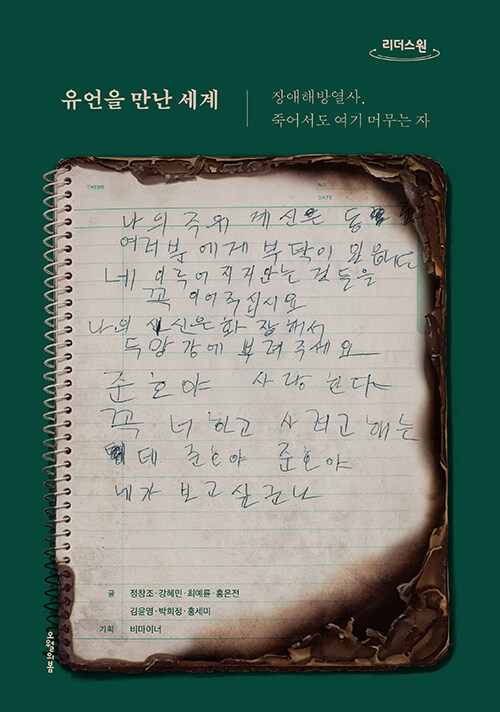 리더스원
유언을 만난 세계
장애해방열사,
죽어서도 여기 머무는 자
THEME
NO.
DATE
나의 주위 계신은 동
여러분에게 부탁이
네 이루어지지안는 것들을
꼭 이어주십시요
나의 시신은 화장해서
두망강에 부려주세요
준호야 사랑한다
꼭 너하고 사려고 해는
데 준호야 준호야
네가 보고 싶군나
글 정창조·강혜민·최예륜·홍은전
김윤영·박희정·홍세미
기획 비마이너
오월의봄